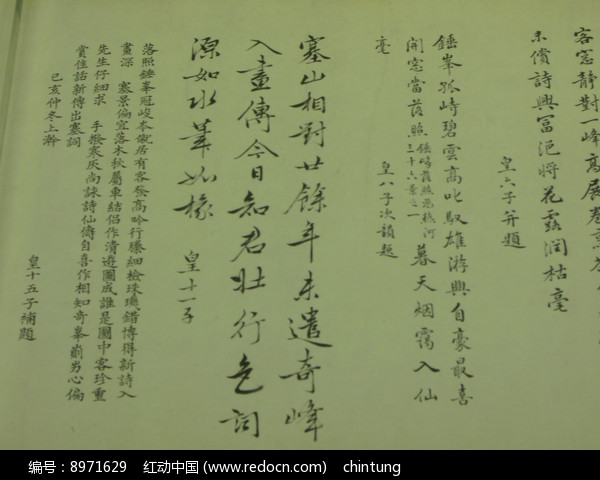 客窓静對一峰高展卷
未償詩興冨浥將花露潤枯毫
皇六子并題
錘峯孤峙碧雲高叱馭雄游興自豪最喜
開窓當落照錘峰落照為热河三十六景之一暮天烟靄入仙
毫
皇八子次韻題
塞山相對廿餘年未遣奇峰
入畫傳今日知君壯行色詞
源如水筆如椽 皇十一子
落照錘峯冠峻岑僦居有客發高吟行縢細檢珠璣錯博得新詩入
畫深 塞景偏宜落木秋屬車結侣作清遊圖成誰是圖中客珍重
先生仔細求 手撥寒灰尚詠詩仙儔自喜作相知奇峯剷心偏
賞佳話新傳出塞詞
己亥仲冬上澣
皇十五子補題
编号：8971629 红动中国 (www.redocn.com) chintung